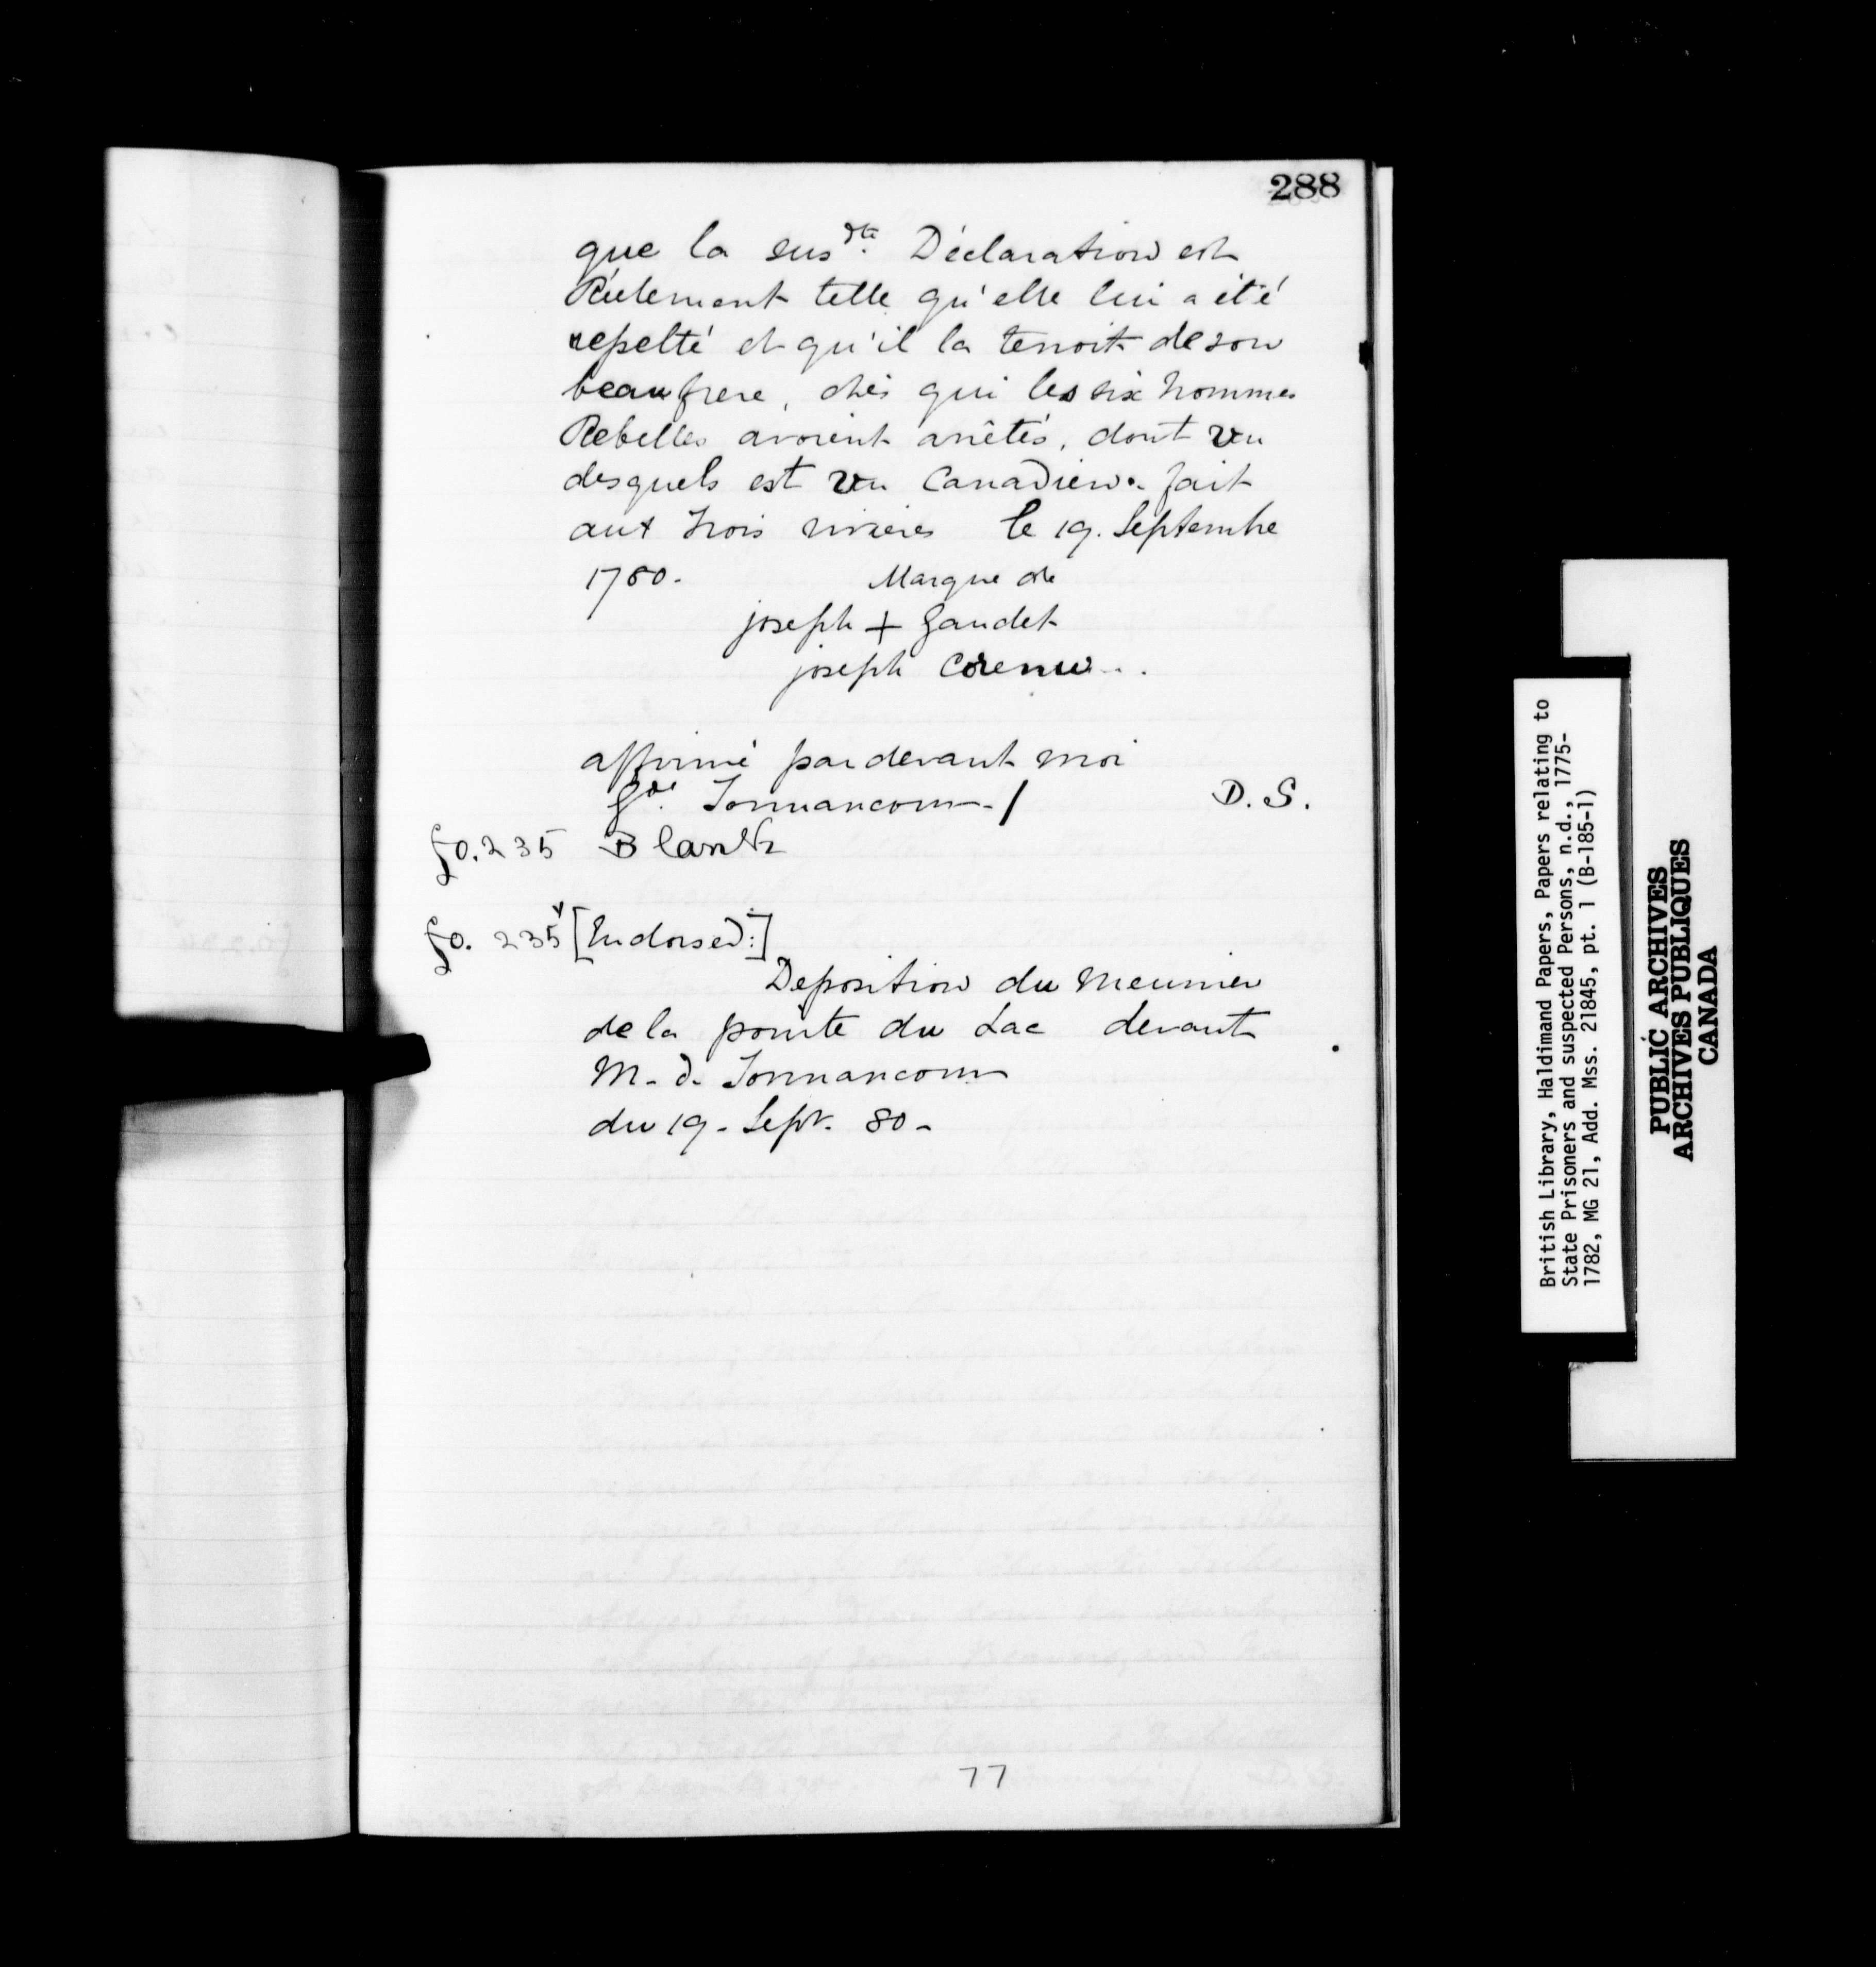 288
que la sus.dte Déclaration est
Réelement telle qu'elle lui a été
repetté et qu'il la tenoit de son
beaufrere, chés qui les six hommes
Rebelles avoient arrêtés, dont un
desquels est un Canadien. fait
aux trois rivieres le 19. Septembre
1780. Marque de
joseph + Gaudet
joseph
affirmé par devant moi
Gde. Tonnancour / D. S.
fo. 235 Blank
fo. 235v [Endorsed:]
Deposition du Meunier
de la pointe du Lac devant
M. d. Tonnancour
du 19. Sept. 80 -
77
British Library, Haldimand Papers, Papers relating to
State Prisoners and suspected Persons, n.d., 1775-
1782, MG 21, Add. Mss. 21845, pt. 1 (B-185-1)
PUBLIC ARCHIVES
ARCHIVES PUBLIQUES
CANADA